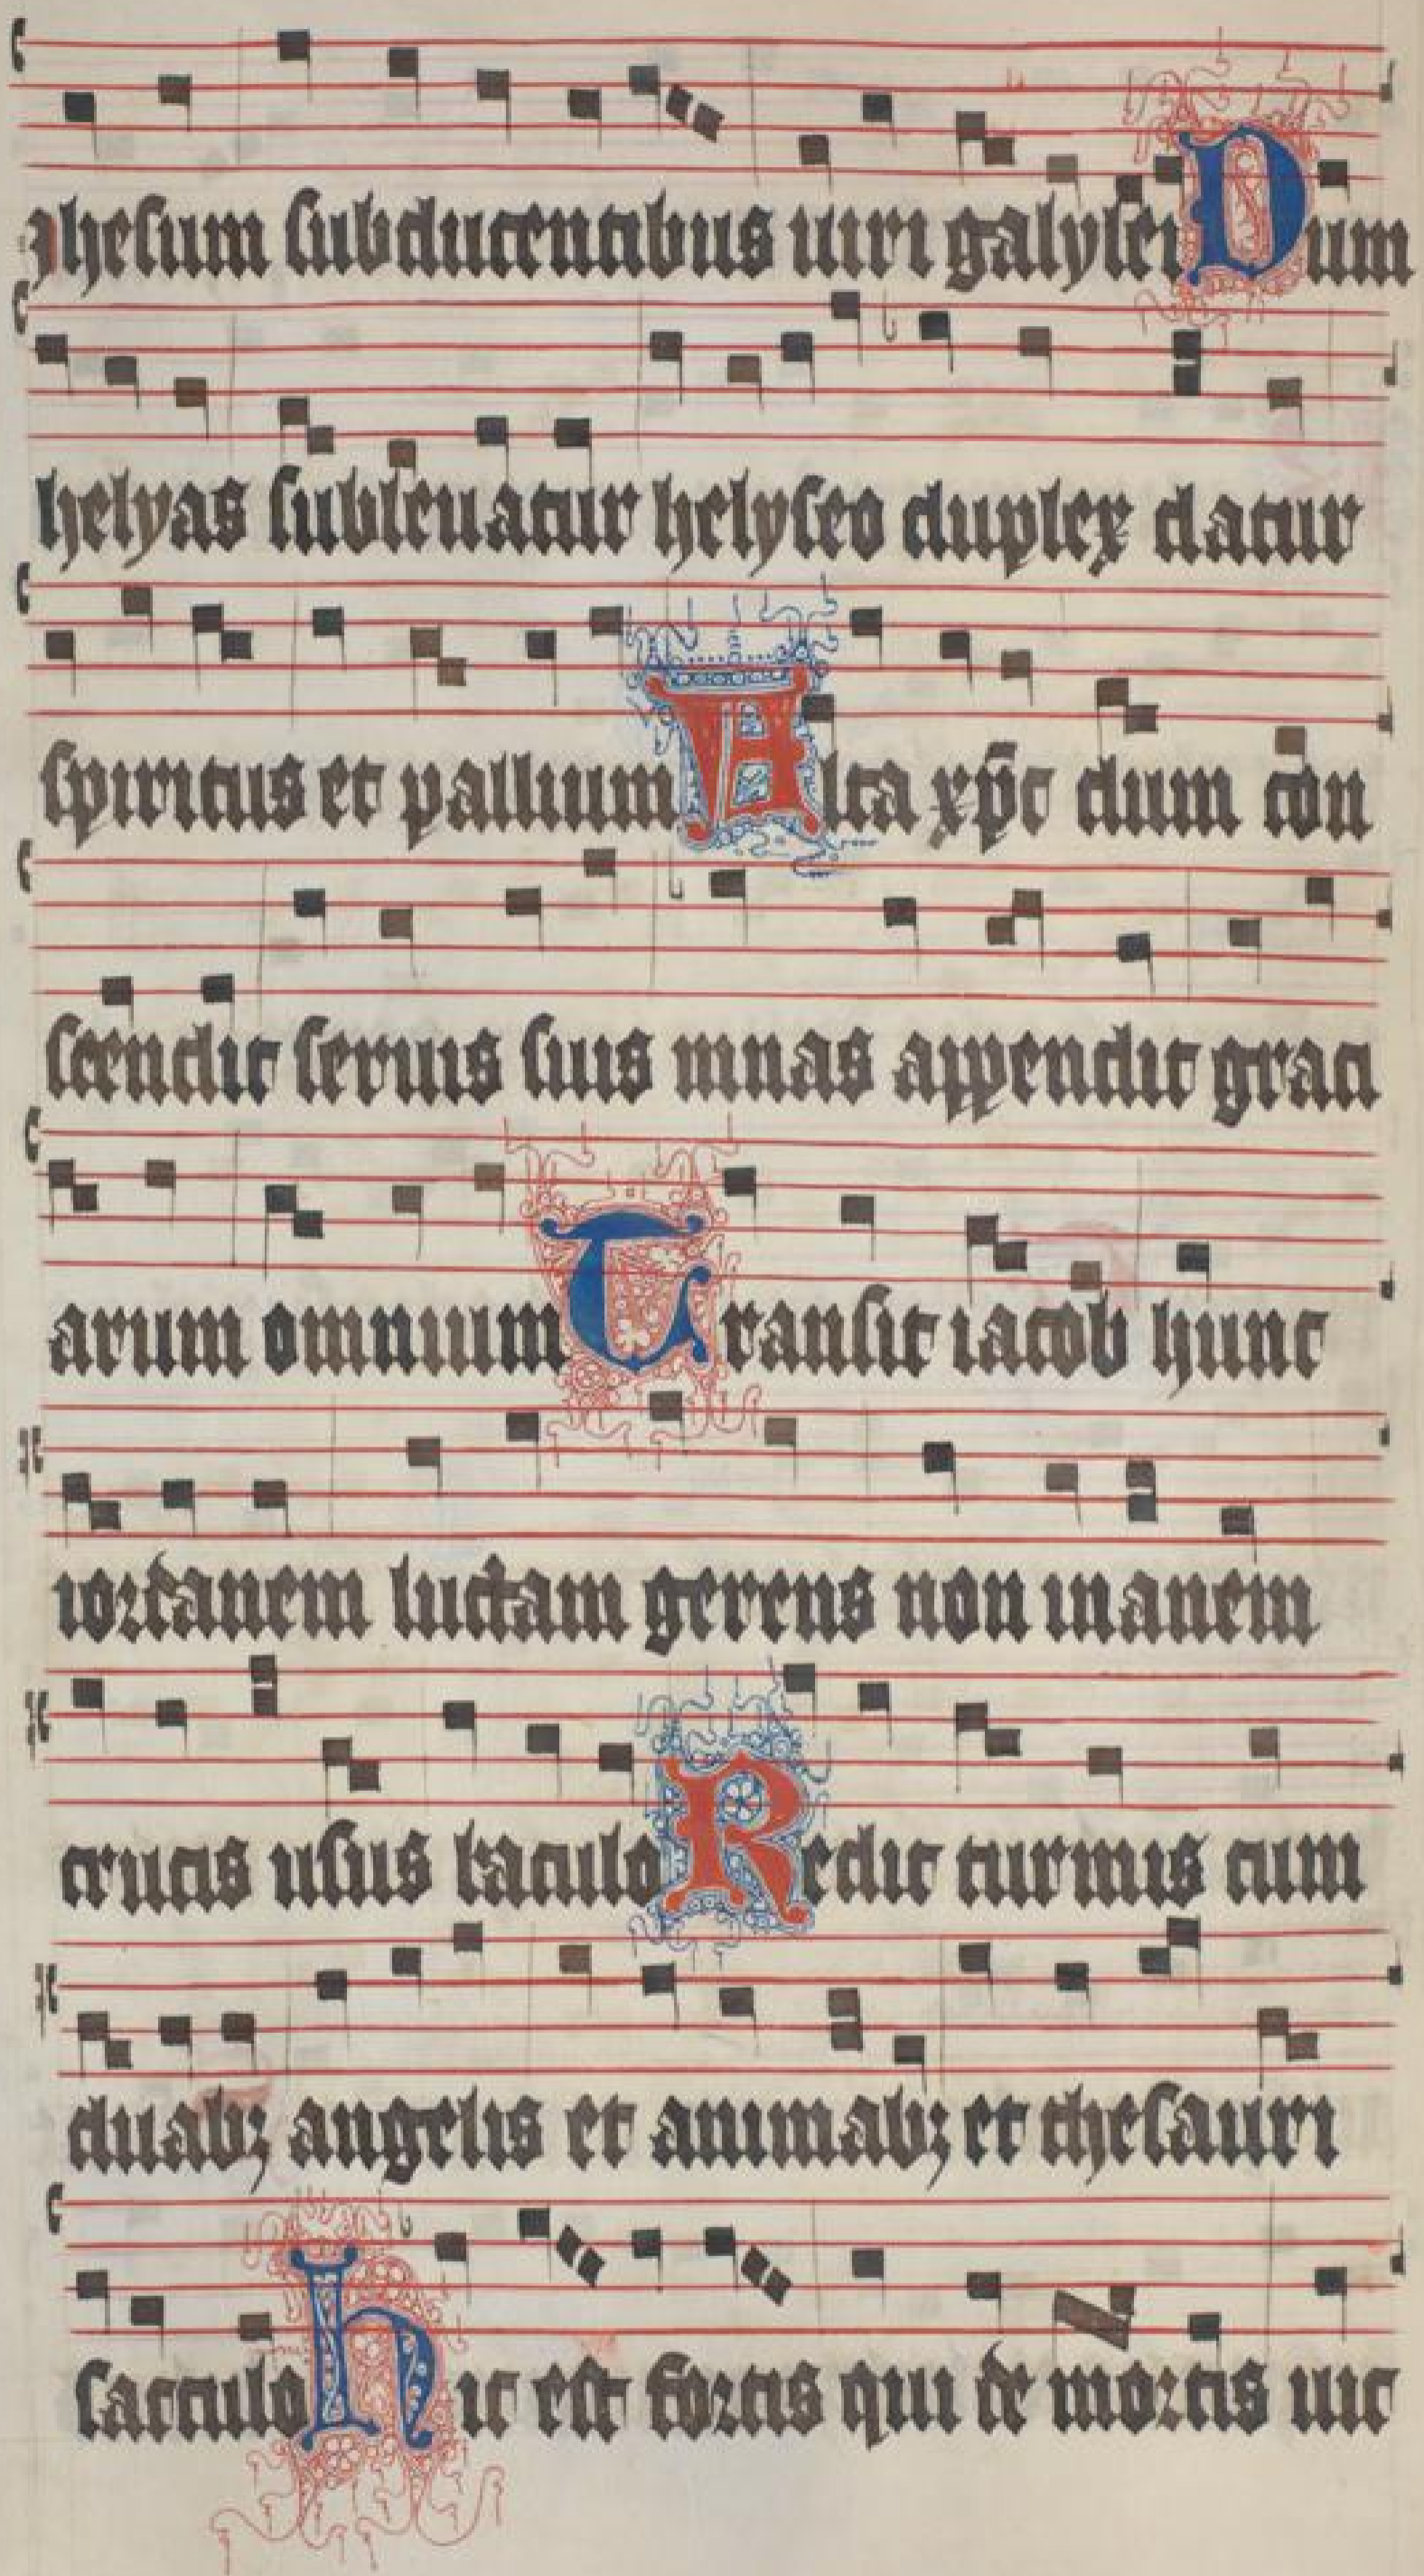 Jhesum subducentibus uiri galylei Dum
helyas subleuatur helyseo duplex datur
spiritus et pallium Alta xp̄c dum con
scendit seruis suis mnas appendit grati
arum omnium Transit iacob hunc
iordanem luctam gerens non inanem
crucis usus baculo Redit turmis cum
duabꝫ angelis et animabꝫ et thesauri
sacculo Hic est fortis qui de mortis uic